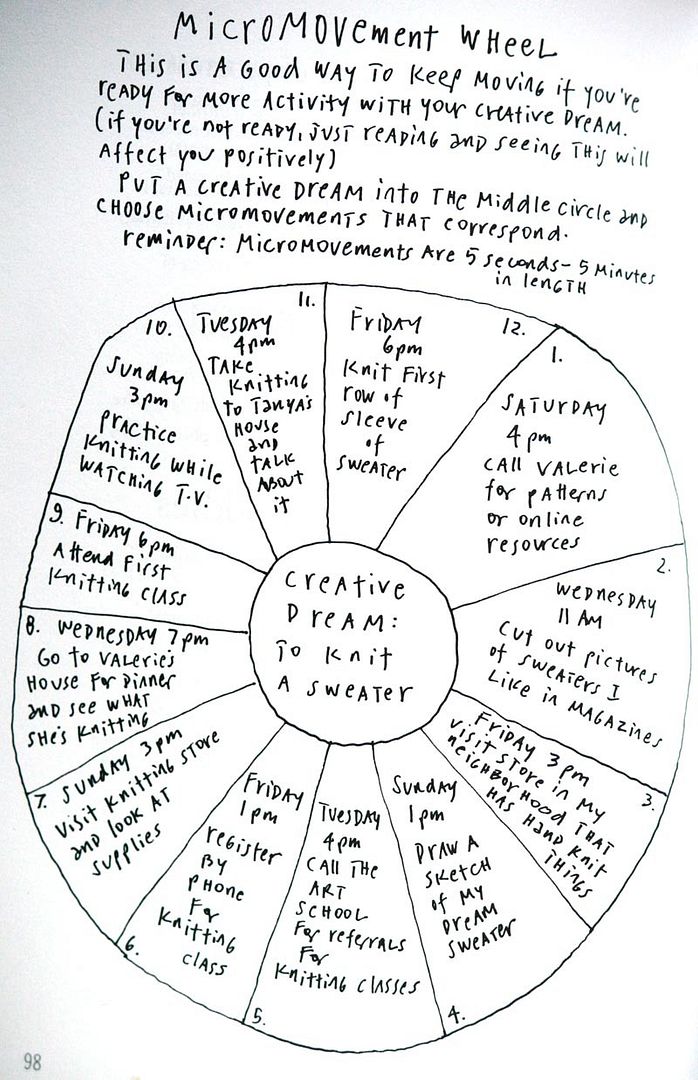 MicroMOVement WHeeL
THis is A GOOD WAY To Keep MOVING if you're
reADY for More Activity WITH your creative DreAM.
(if you're not reADY, JUST reADING and seeing THis will
Affect you positively)
PUT A creative DreAM into THe MiDDLe circle and
CHOOSE MicromovemenTs THAT correspond.
reminDer: MicroMoveMenTs Are 5 seconds - 5 Minutes
in LenGTH
1.
SATurDAY
4 pm
CALL VALerie
for pAtterns
or online
resources
2.
WeDnesDAY
11 AM
CUT out pictures
of sweATers I
Like in MAGAzines
3.
FriDAY 3 pm
Visit STore in MY
neiGHBorHOOD THAT
HAS HAnD Knit
THinGs
4.
SunDAY
1pm
DrAW A
SKeTCH
of MY
DreAM
sweATer
5.
TuesDAY
4pm
CALL THe
ArT
SCHOOL
For referrALs
For
KniTTinG CLAsses
6.
FriDAY
1pm
reGisTer
BY
PHone
For
KniTTinG
cLAss
7. SunDAY 3 pm
Visit KniTTinG STore
and LooK AT
supplies
8. WeDnesDAY 7pm
Go to VALerie's
House For Dinner
AnD see WHAT
SHe's KniTTinG
9. FriDAY 6pm
ATTenD First
KniTTinG CLASS
10.
SunDAY
3 pm
prAcTice
KniTTinG WHiLe
WATCHinG T.V.
11.
TuesDAY
4pm
TAKe
KniTTinG
to TAnYA's
House
AnD
TALK
ABout
iT
12.
FriDAY
6pm
Knit First
row of
sleeve
of
sweATer
CreATive
DreAM:
To Knit
A sweATer
98